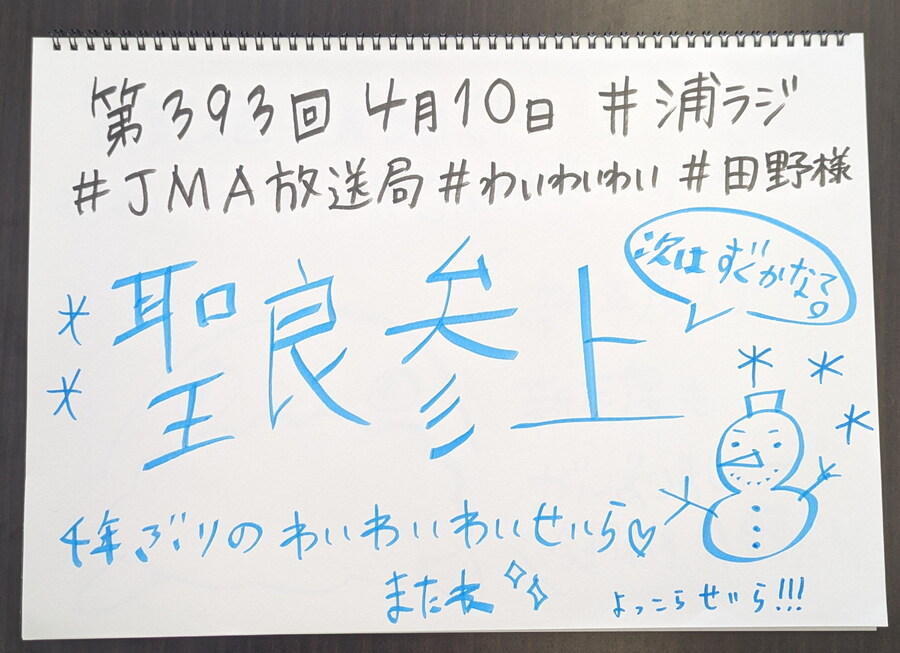 第393回 4月10日 #浦ラジ
#JMA放送局 #わいわいわい #田野様
聖良参上
次はすぐかなて。
4年ぶりの わいわいわいせいら♡
またね
よっこらせいら!!!